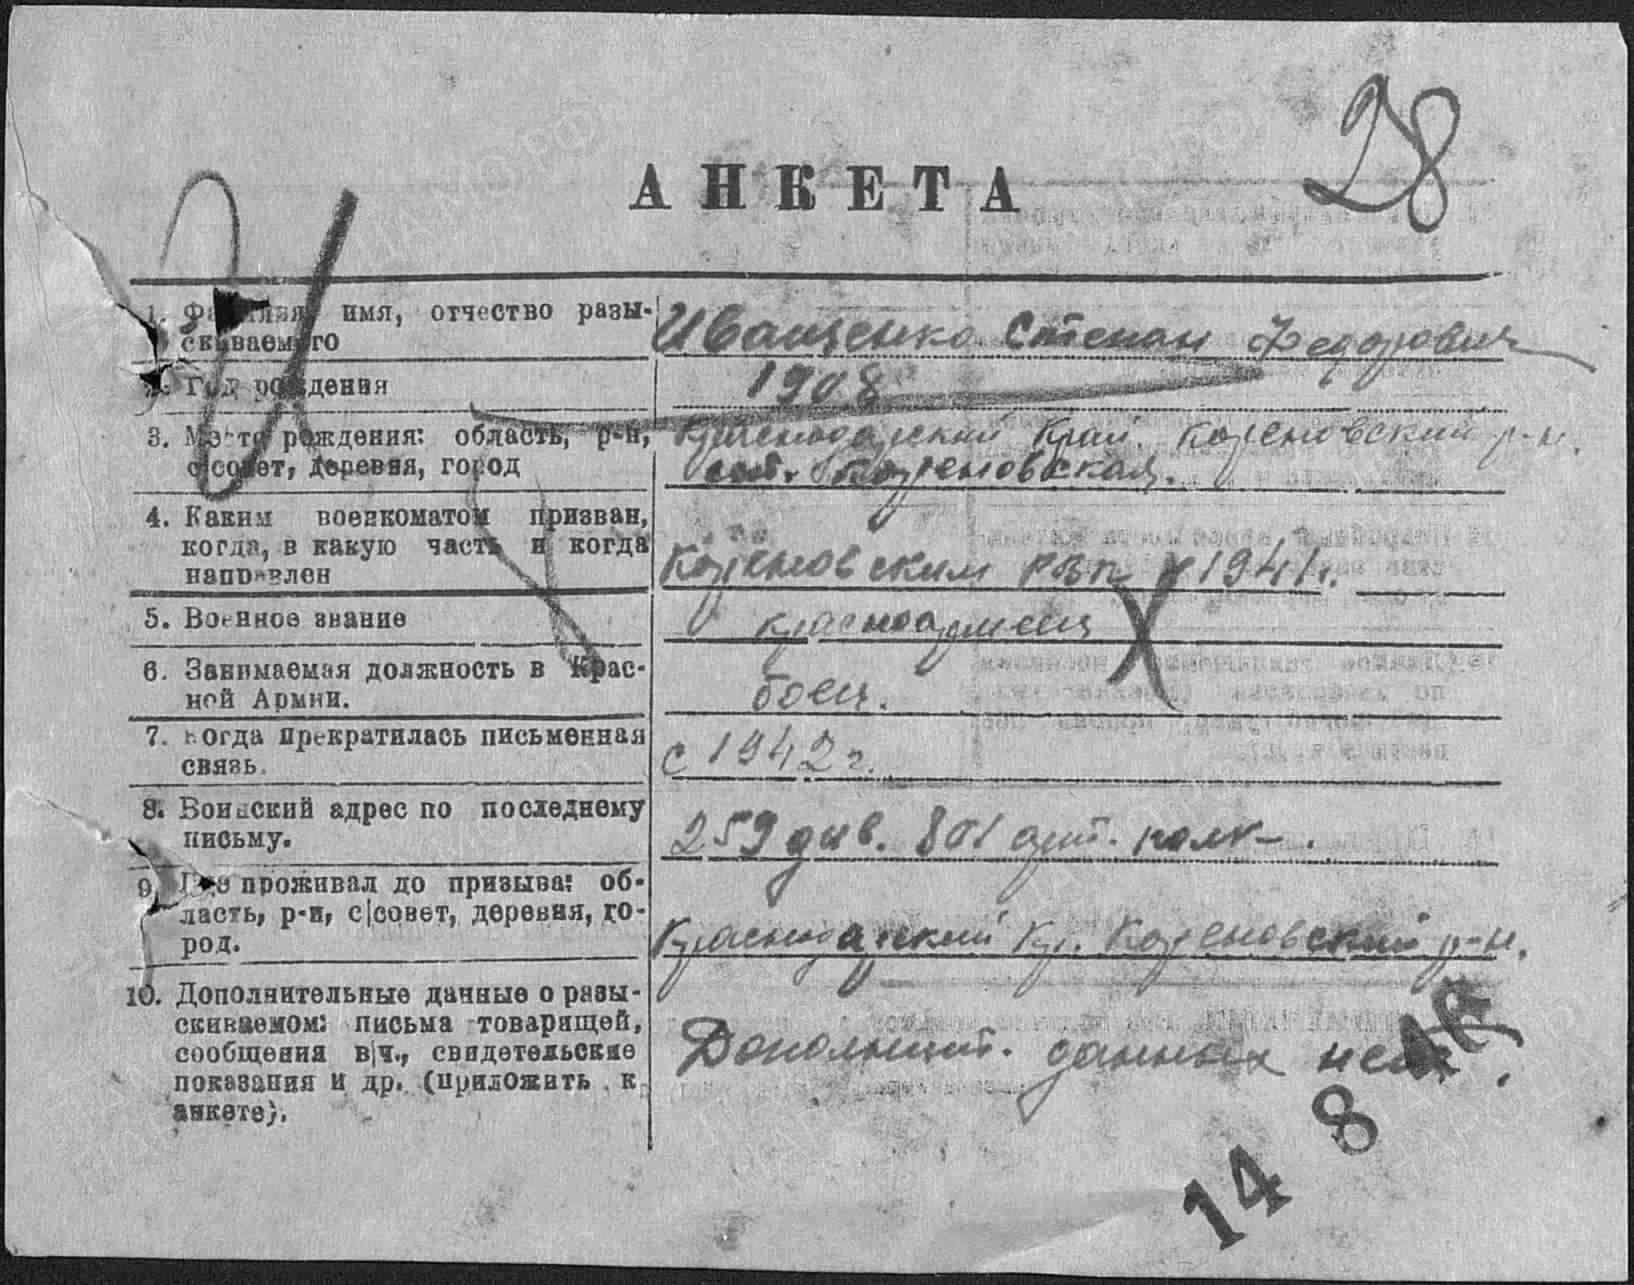 28
АНКЕТА
1. Фамилия, имя, отчество разы-
скиваемого
Иващенко Степан Федорович
2. Год рождения
1908
3. Место рождения: область, р-н,
с|совет, деревня, город
Краснодарский Край. Кореновский р-н.
ст. Кореновская.
4. Каким военкоматом призван,
когда, в какую часть и когда
направлен
Кореновским РВК 1941 г.
5. Военное звание
красноармеец
6. Занимаемая должность в Крас-
ной Армии.
боец.
7. Когда прекратилась письменная
связь.
с 1942 г.
8. Воинский адрес по последнему
письму.
259 див. 801 арт. полк.
9. Где проживал до призыва: об-
ласть, р-н, с|совет, деревня, го-
род.
Краснодарский кр. Кореновский р-н.
10. Дополнительные данные о разы-
скиваемом: письма товарищей,
сообщения в|ч., свидетельские
показания и др. (приложить к
анкете).
Дополнит. данных нет.
14 8